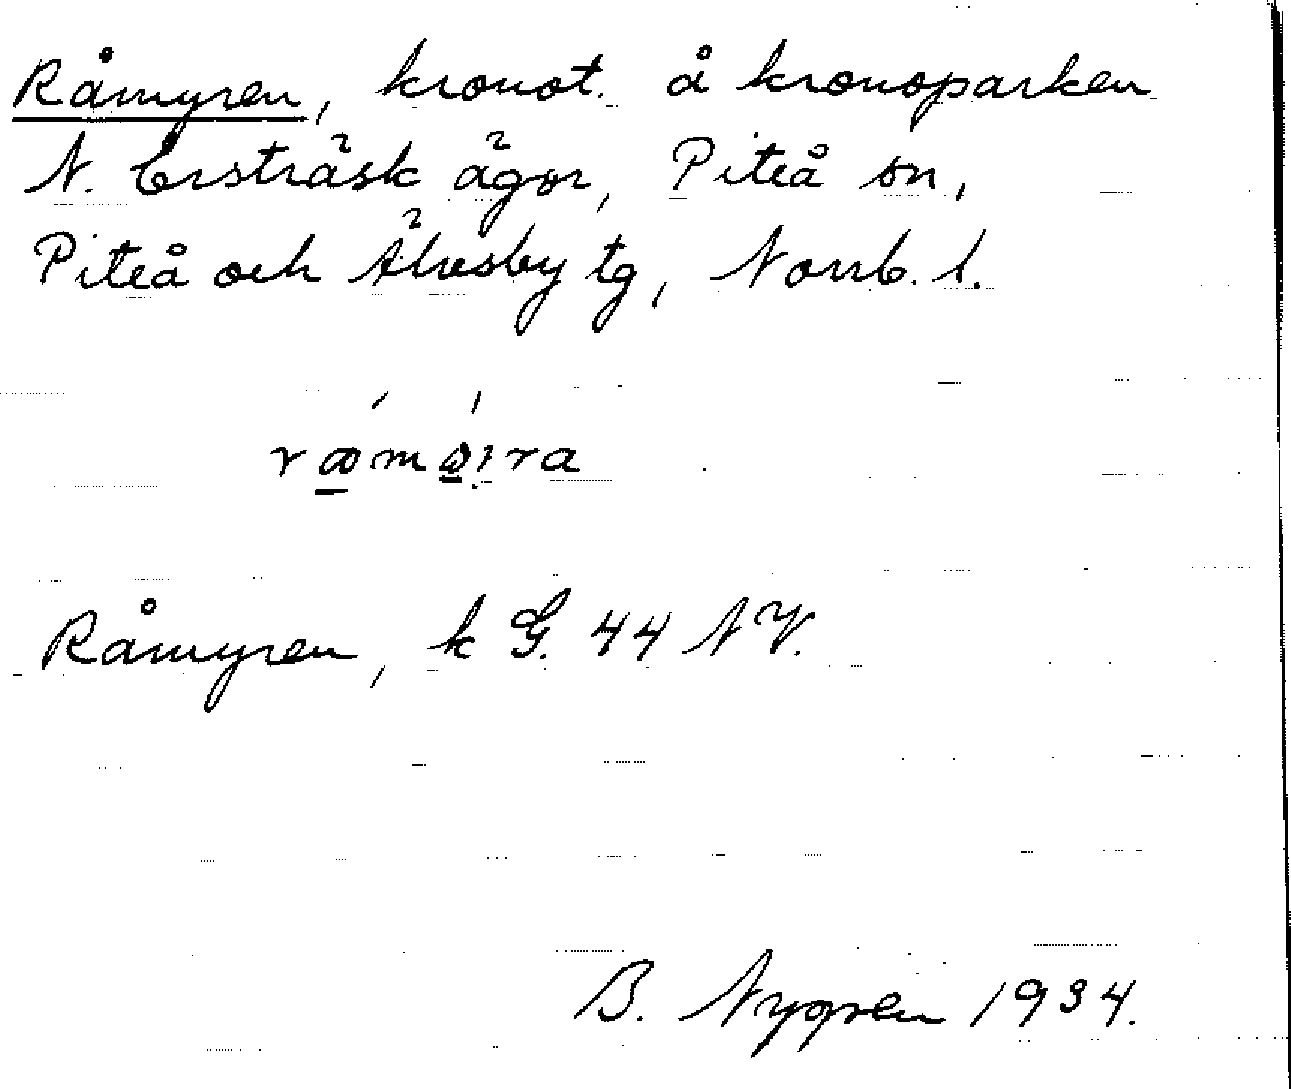 Råmyren, kronot. å kronoparken
N. Ersträsk ägor, Piteå sn,
Piteå och Älvsby tg, Norrb. l.
Råmyren, k G. 44 NV.
B. Nygren 1934.